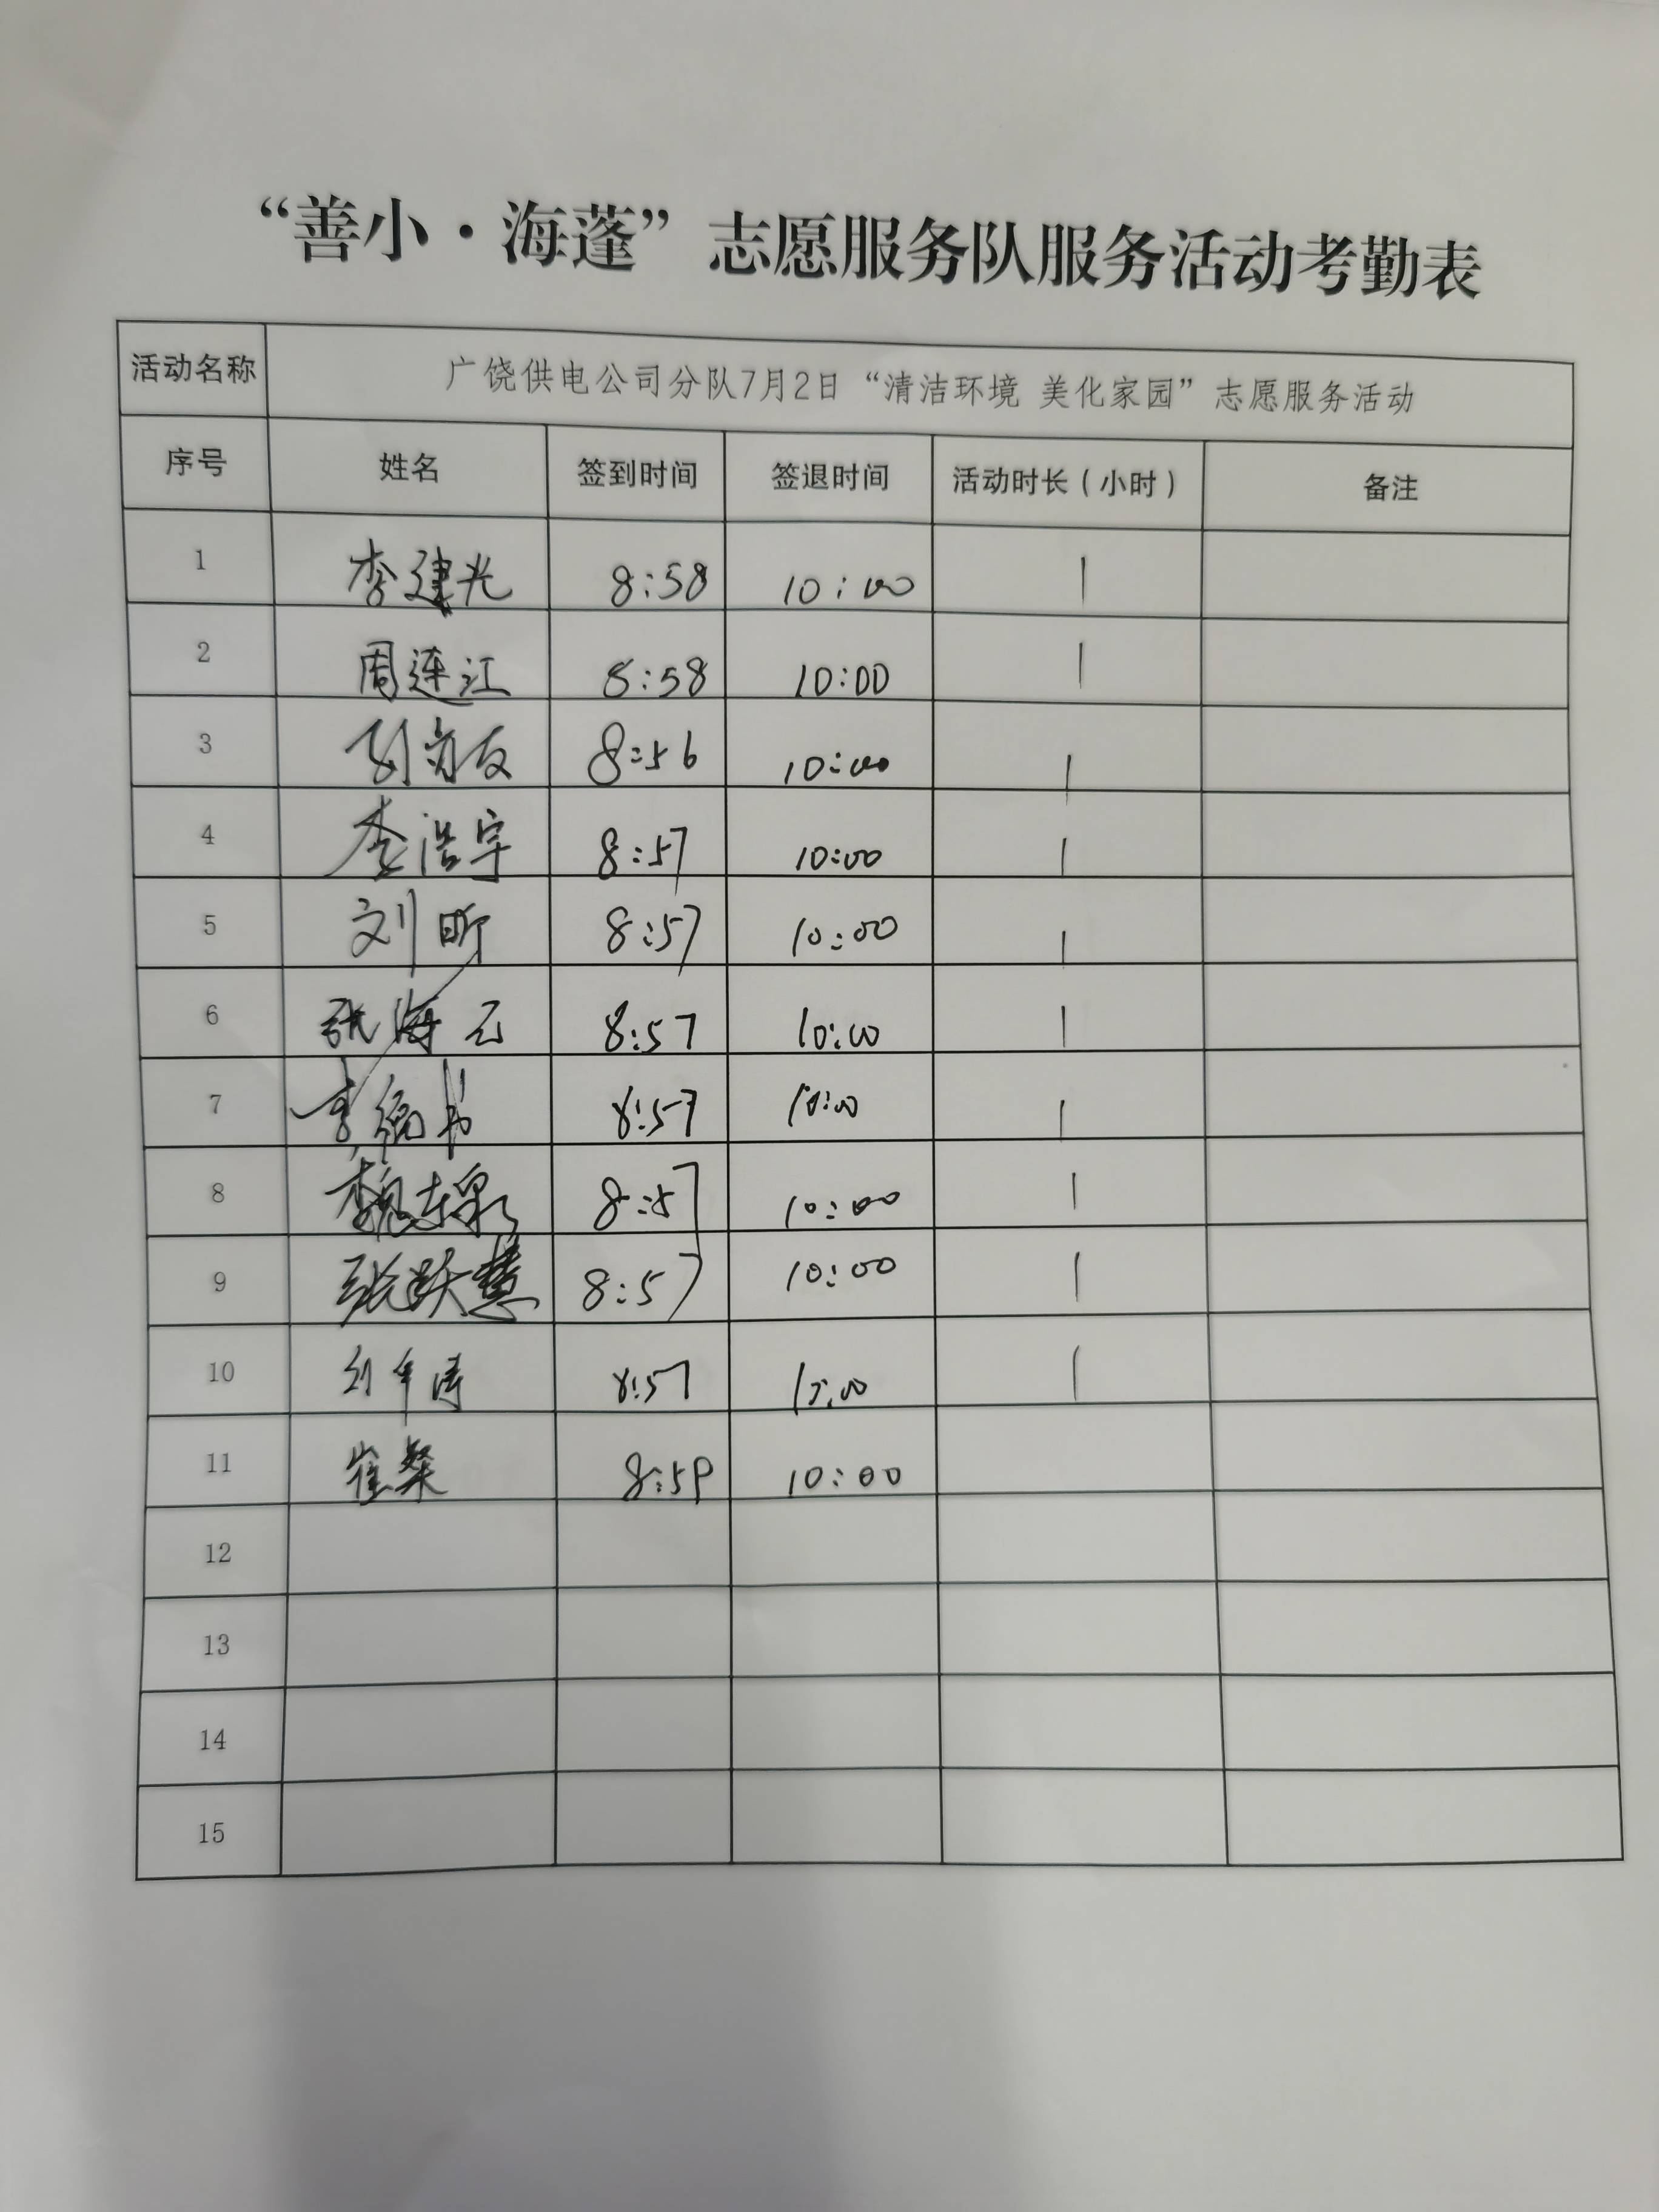 “善小·海蓬”志愿服务队服务活动考勤表
活动名称 广饶供电公司分队7月2日“清洁环境 美化家园”志愿服务活动
序号 姓名 签到时间 签退时间 活动时长(小时) 备注
1 李建光 8:58 10:00 1
2 周连江 8:58 10:00 1
3 8:56 10:00 1
4 李浩宇 8:57 10:00 1
5 刘昕 8:57 10:00 1
6 张海云 8:57 10:00 1
7 8:57 10:00 1
8 魏东泉 8:57 10:00 1
9 张跃慧 8:57 10:00 1
10 8:57 10:00 1
11 崔粲 8:59 10:00
12
13
14
15